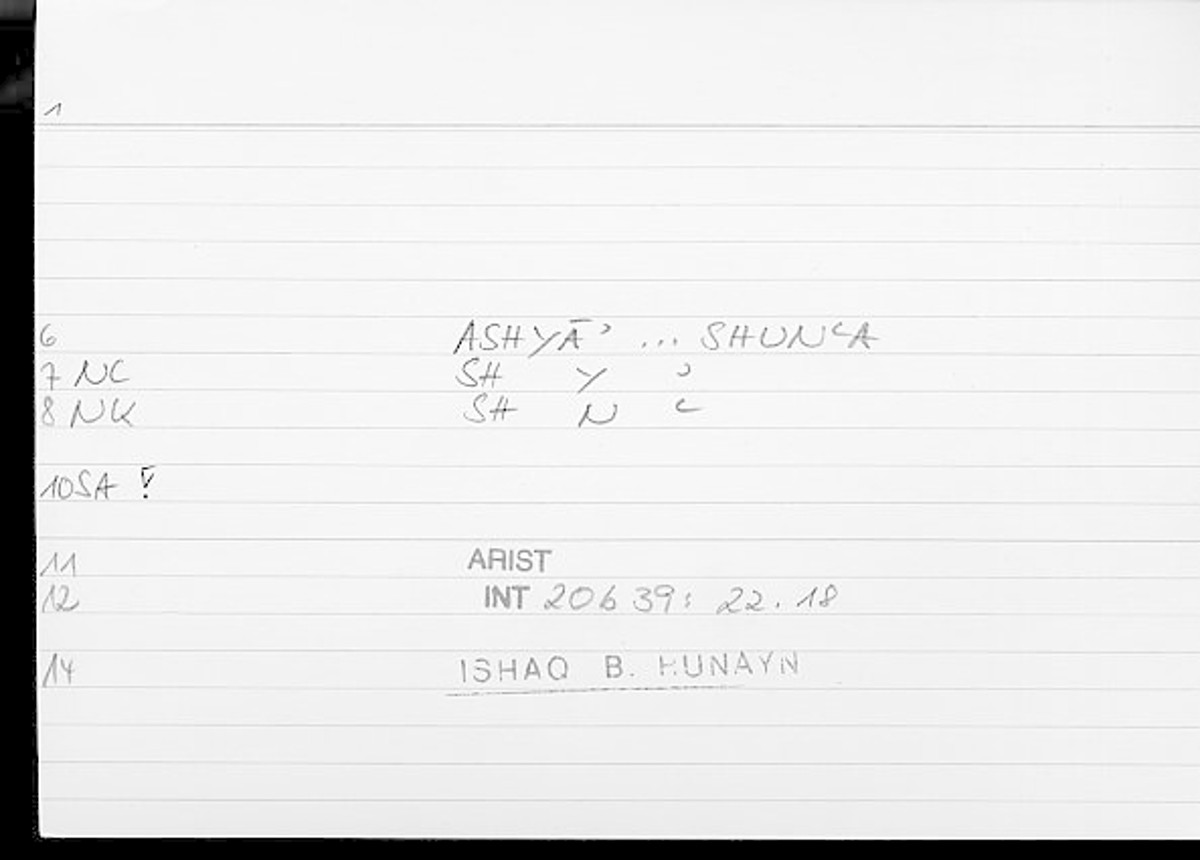 1
6 ASHYĀʾ ... SHUNʿA
7 NC SH Y ʾ
8 NK SH N ʿ
10 SA !
11 ARIST
12 INT 20b 39: 22.18
14 ISHAQ B. HUNAYN